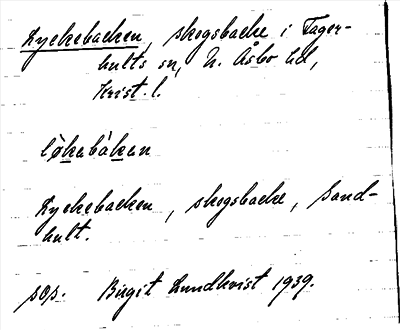 Lyckebacken, skogsbacke i Fager-
hults sn, N. Åsbo hd,
Krist. l.
lökebàkan
Lyckebacken, skogsbacke, Sand-
hult.
sep. Birgit Lundkvist 1939.